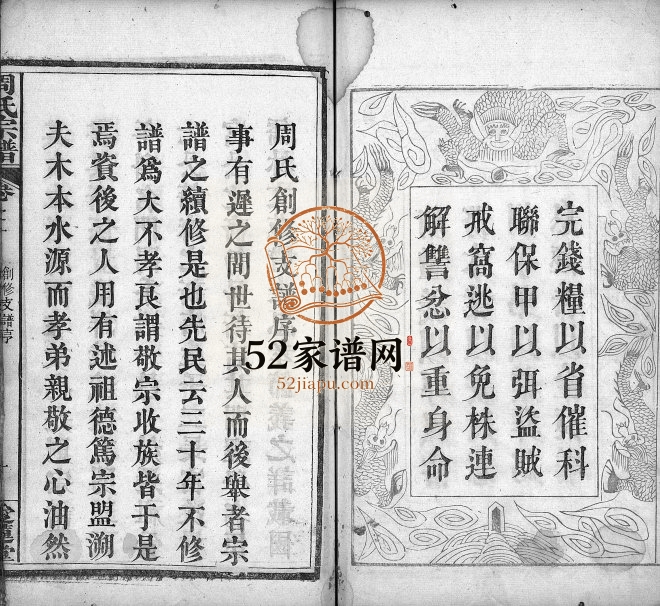 完錢糧以省催科
聯保甲以弭盜賊
戒窩逃以免株連
解讐忿以重身命
周氏創修支譜序
事有遲之間世待其人而後舉者宗
譜之續修是也先民云三十年不修
譜爲大不孝良謂敬宗收族皆于是
焉資後之人用有述祖德篤宗盟溯
夫木本水源而孝弟親敬之心油然
周氏宗譜
卷之
創修支譜序
52家谱网
52jiapu.com